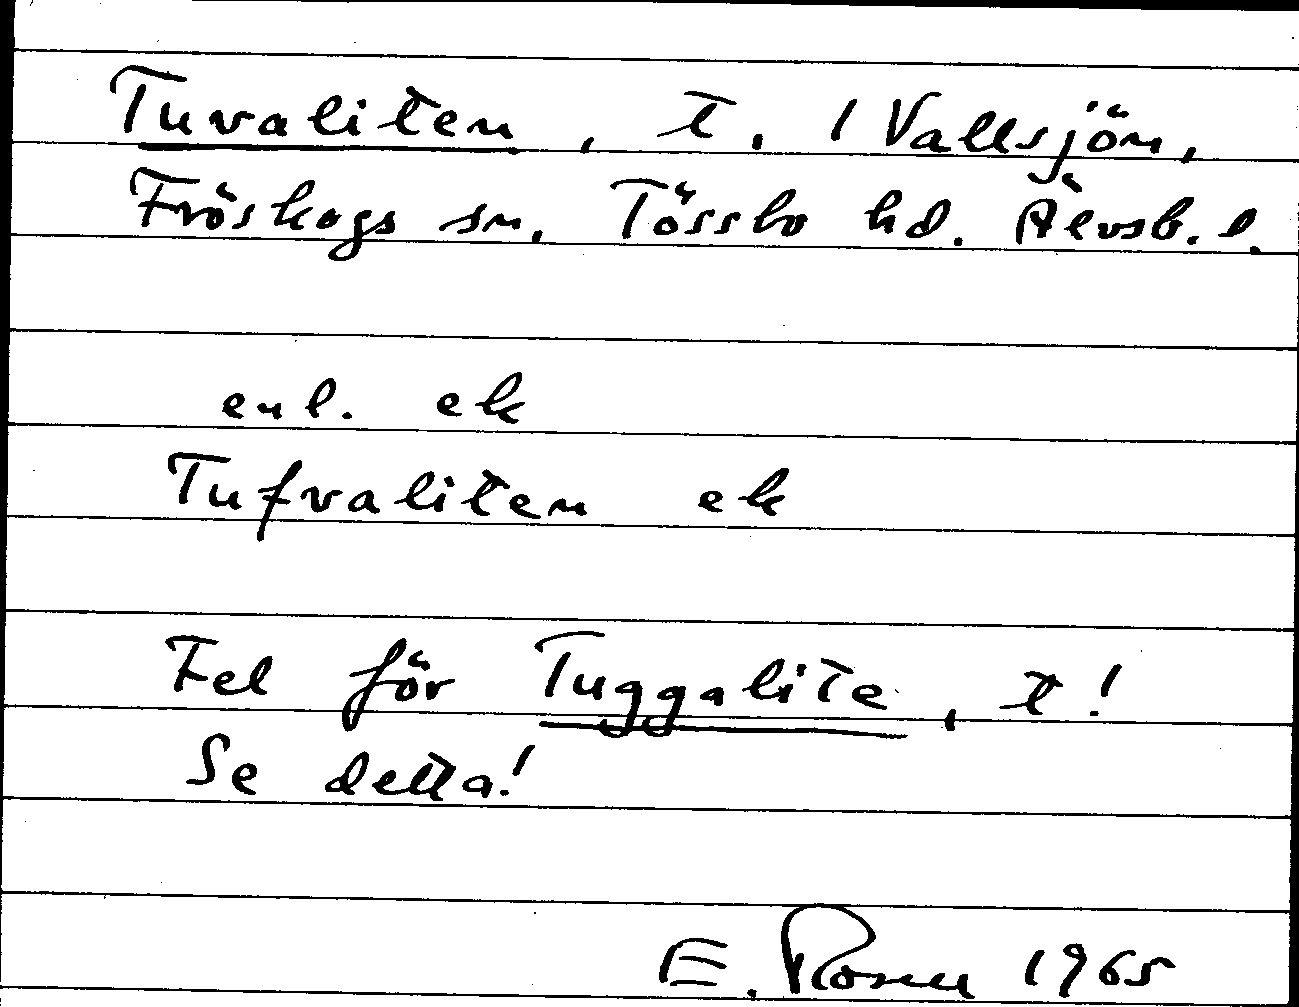 Tuvaliten, t. i Vallsjön,
Fröskogs sn. Tössbo hd. Älvsb. l.
enl. ek
Tufvaliten ek
Fel för Tuggalite, t!
Se detta!
E. Rosen 1965